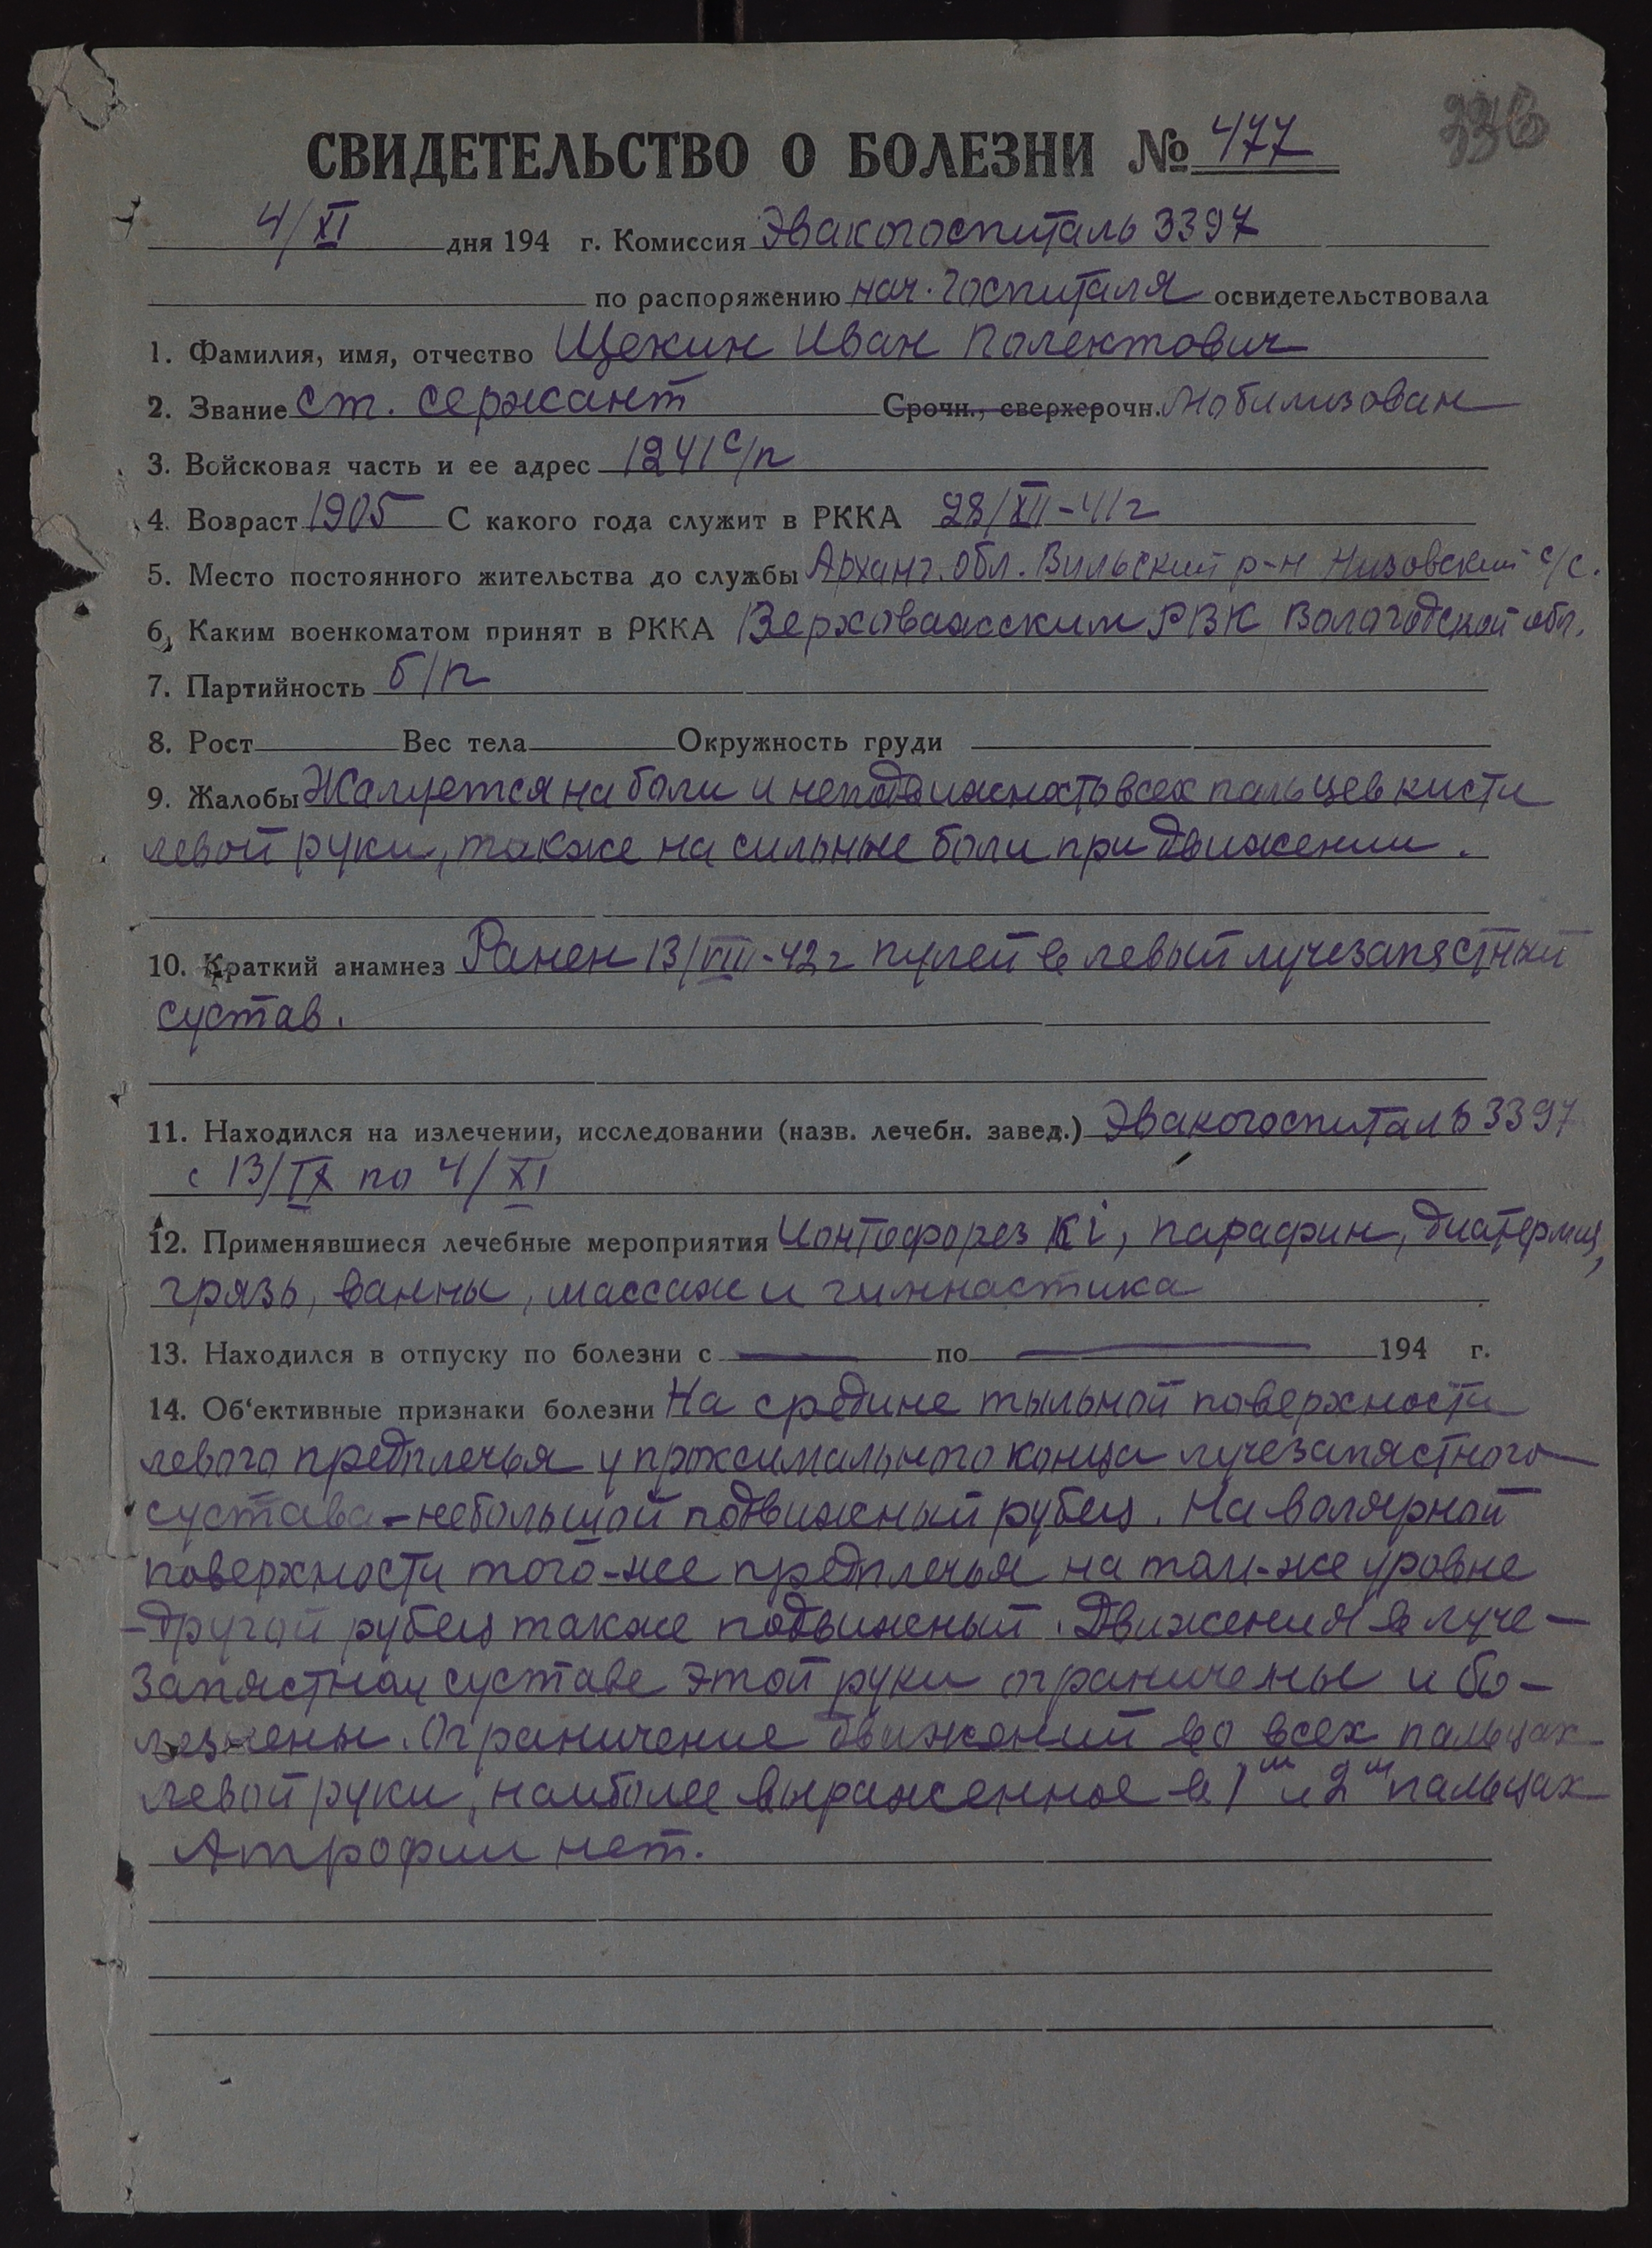 336
СВИДЕТЕЛЬСТВО О БОЛЕЗНИ № 477
4/XI дня 194 г. Комиссия Эвакогоспиталь 3397
по распоряжению нач. госпиталя освидетельствовала
1. Фамилия, имя, отчество Щекин Иван Полектович
2. Звание ст. сержант Срочн., сверхсрочн. Мобилизован
3. Войсковая часть и ее адрес 1241 с/п
4. Возраст 1905 С какого года служит в РККА 28/XII-41г
5. Место постоянного жительства до службы Арханг. обл. Вильский р-н Низовский с/с.
6. Каким военкоматом принят в РККА Верховажским РВК Вологодской обл.
7. Партийность б/п
8. Рост Вес тела Окружность груди
9. Жалобы Жалуется на боли и неподвижность всех пальцев кисти
левой руки, также на сильные боли при движении.
10. Краткий анамнез Ранен 13/VIII-42г пулей в левый лучезапястный
сустав.
11. Находился на излечении, исследовании (назв. лечебн. завед.) Эвакогоспиталь 3397
с 13/IX по 4/XI
12. Применявшиеся лечебные мероприятия Ионтофорез Ki, парафин, диатермия,
грязь, ванны, массаж и гимнастика
13. Находился в отпуску по болезни с — по — 194 г.
14. Об'ективные признаки болезни На средине тыльной поверхности
левого предплечья у проксимального конца лучезапястного
сустава - небольшой подвижный рубец. На волярной
поверхности того-же предплечья на том-же уровне
- другой рубец также подвижный. Движения в луче-
запястном суставе этой руки ограничены и бо-
лезнены. Ограничение движений во всех пальцах
левой руки, наиболее выраженное в 1м и 2м пальцах
Атрофии нет.